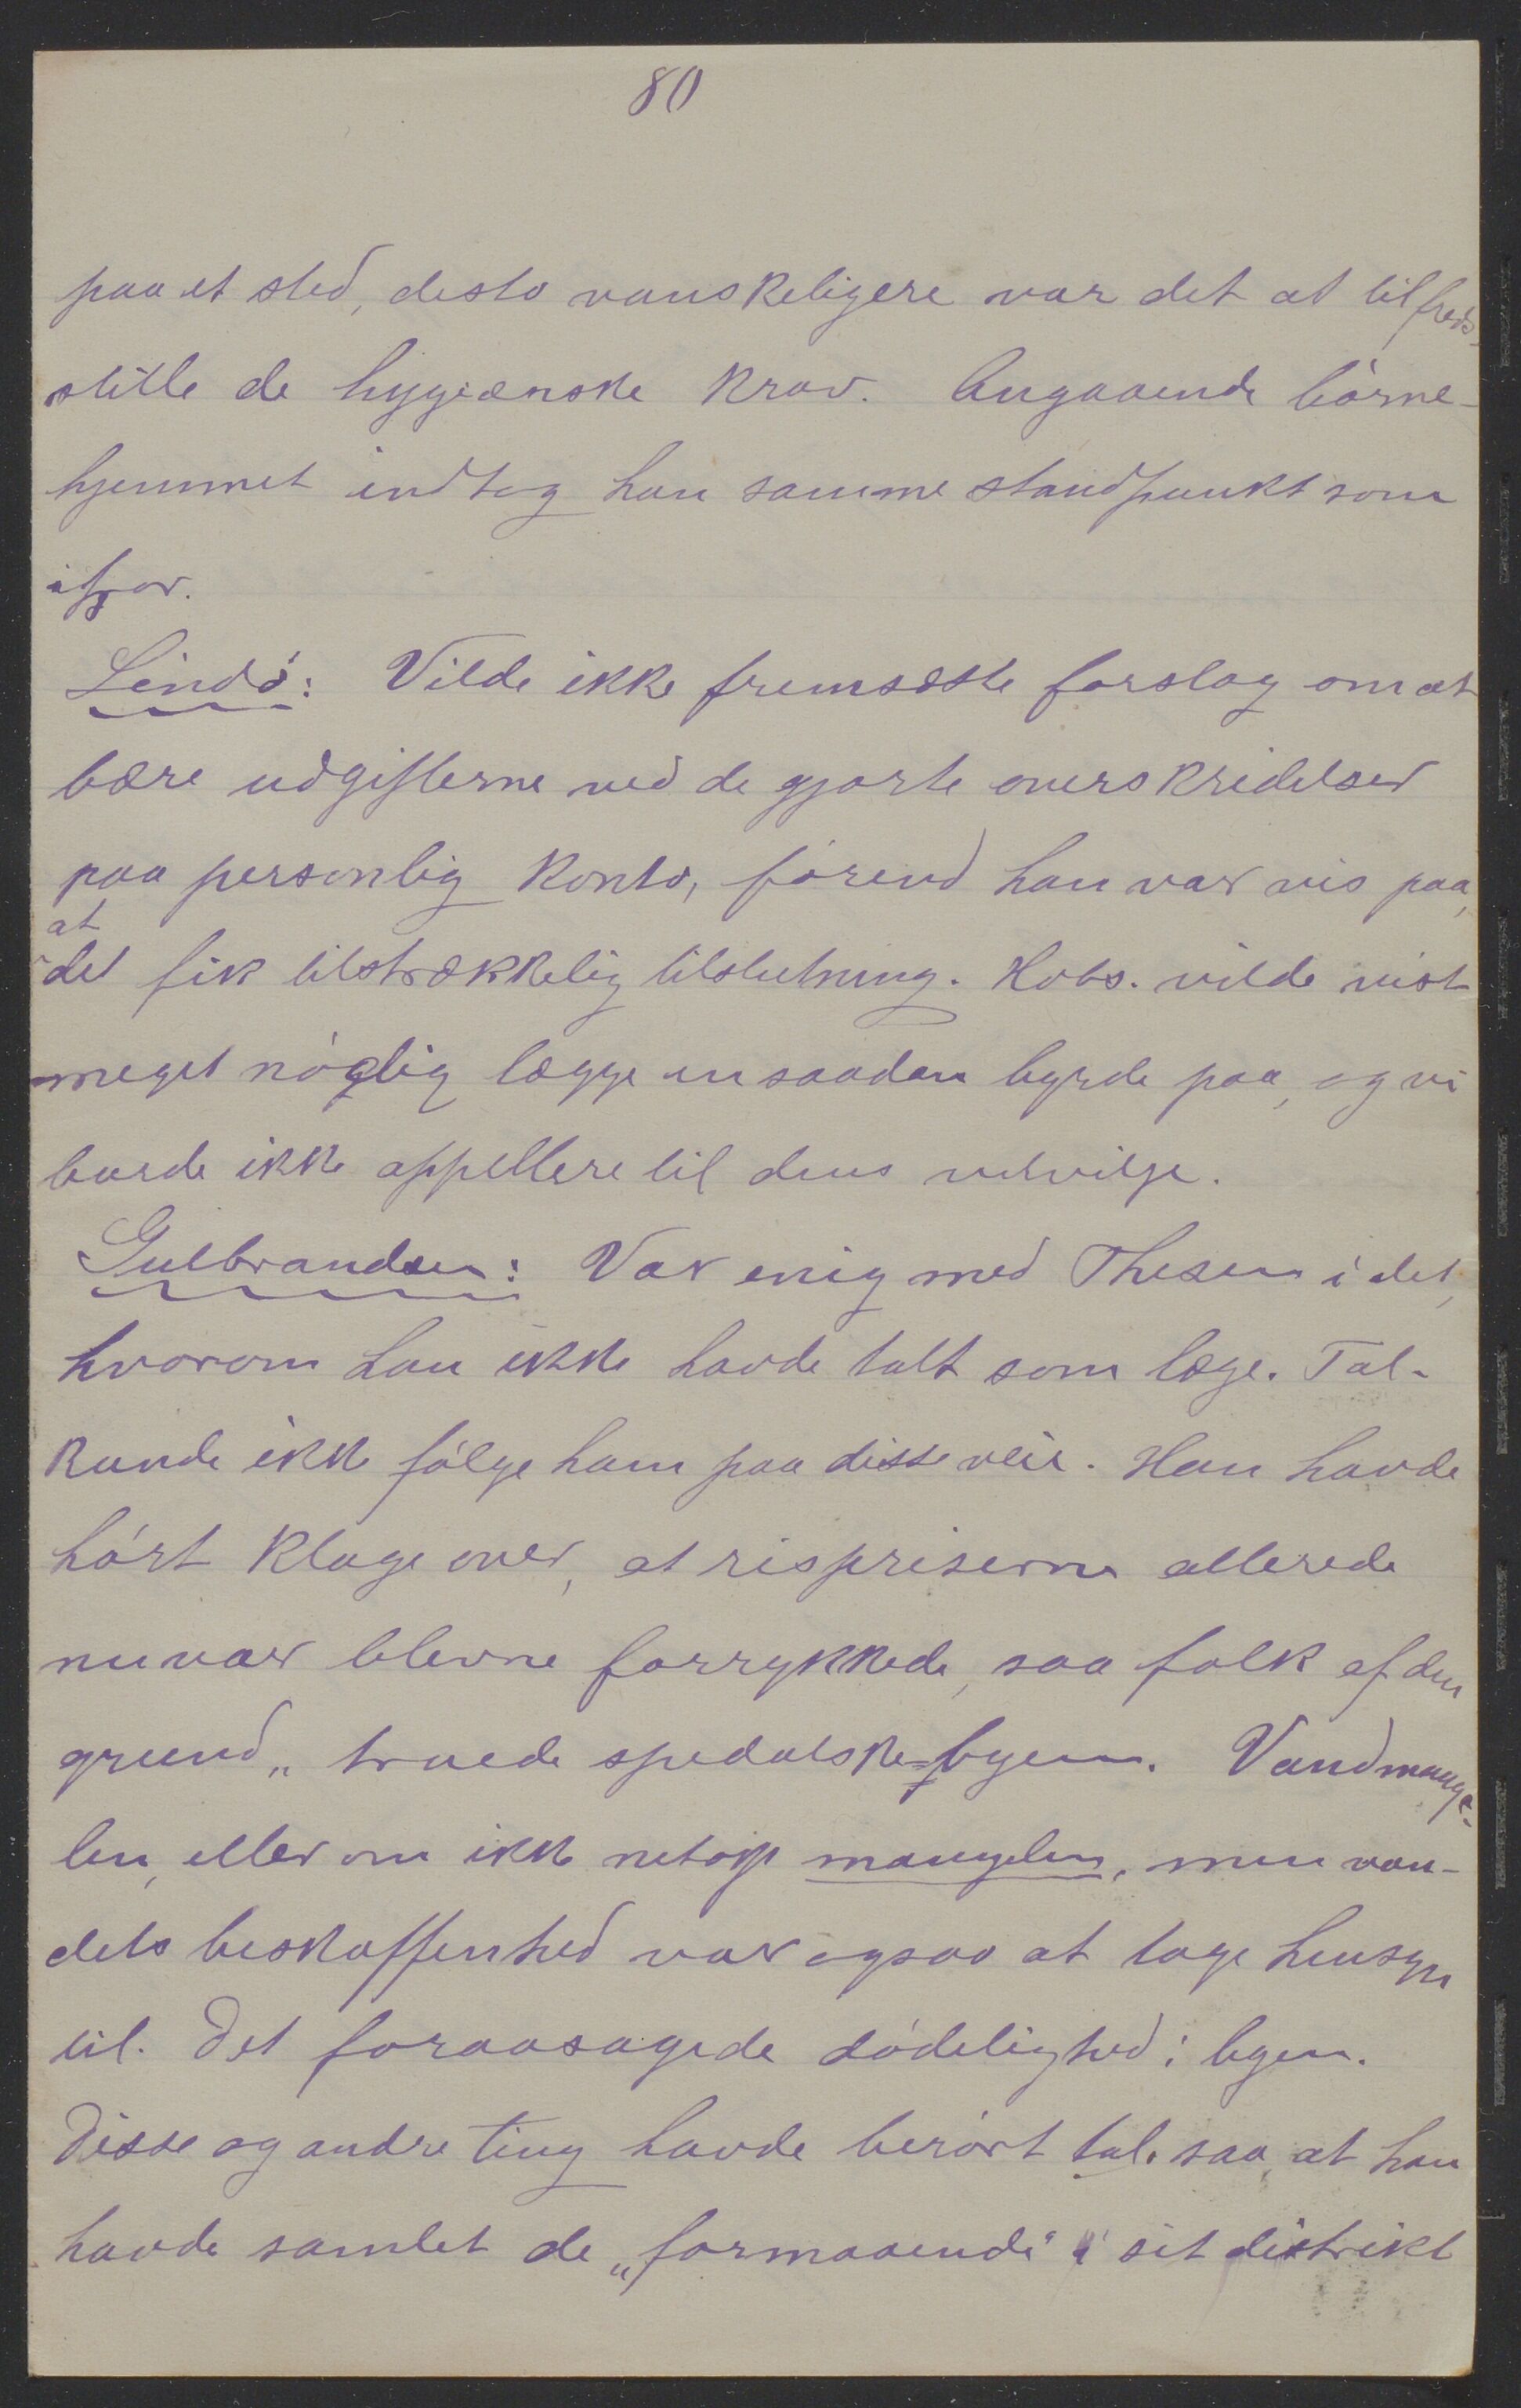 80
paa et sted, desto vanskeligere var det at tilfreds-
stille de hygiænske krav. Angaaende börne-
hjemmet indtog han samme standpunkt som
ifjor.
Lindö: Vilde ikke fremsætte forslag om at
bære udgifterne ved de gjorte overskridelser
paa personlig konto, förend han var vis paa,
at
det fik tilstrækkelig tilslutning. Hobs. vilde vist
meget nödig lægge en saadan byrde paa, og vi
burde ikke appellere til dens velvilje.
Gulbrandsen: Var enig med Thesen i det,
hvorom han ikke havde talt som læge. Tal.
kunde ikke fölge ham paa disse veie. Han havde
hört klage over, at rispriserne allerede
nu var blevne forrykkede, saa folk af den
grund „ truede spedalske-byen. Vandmange-
len, eller om ikke netop mangelen, men van-
dets beskaffenhed var ogsaa at tage hensyn
til. Det foraarsagede dödelighed i byen.
Disse og andre ting havde berört tal. saa, at han
havde samlet de „formaaende“ i sit distrikt